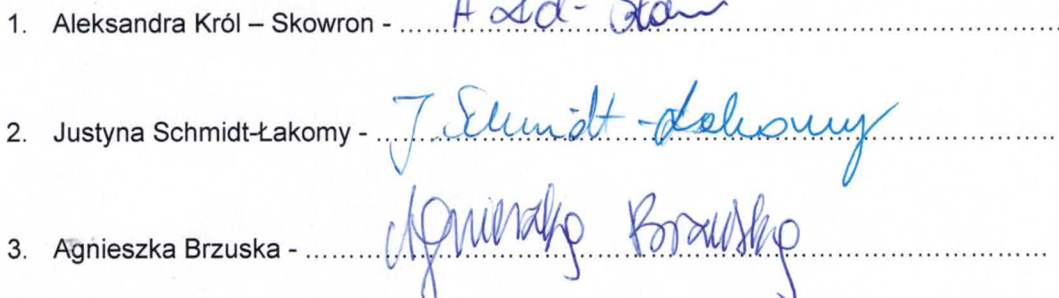 1. Aleksandra Król – Skowron - ....................
2. Justyna Schmidt-Łakomy - J. Schmidt-Łakomy
3. Agnieszka Brzuska - Agnieszka Brzuska